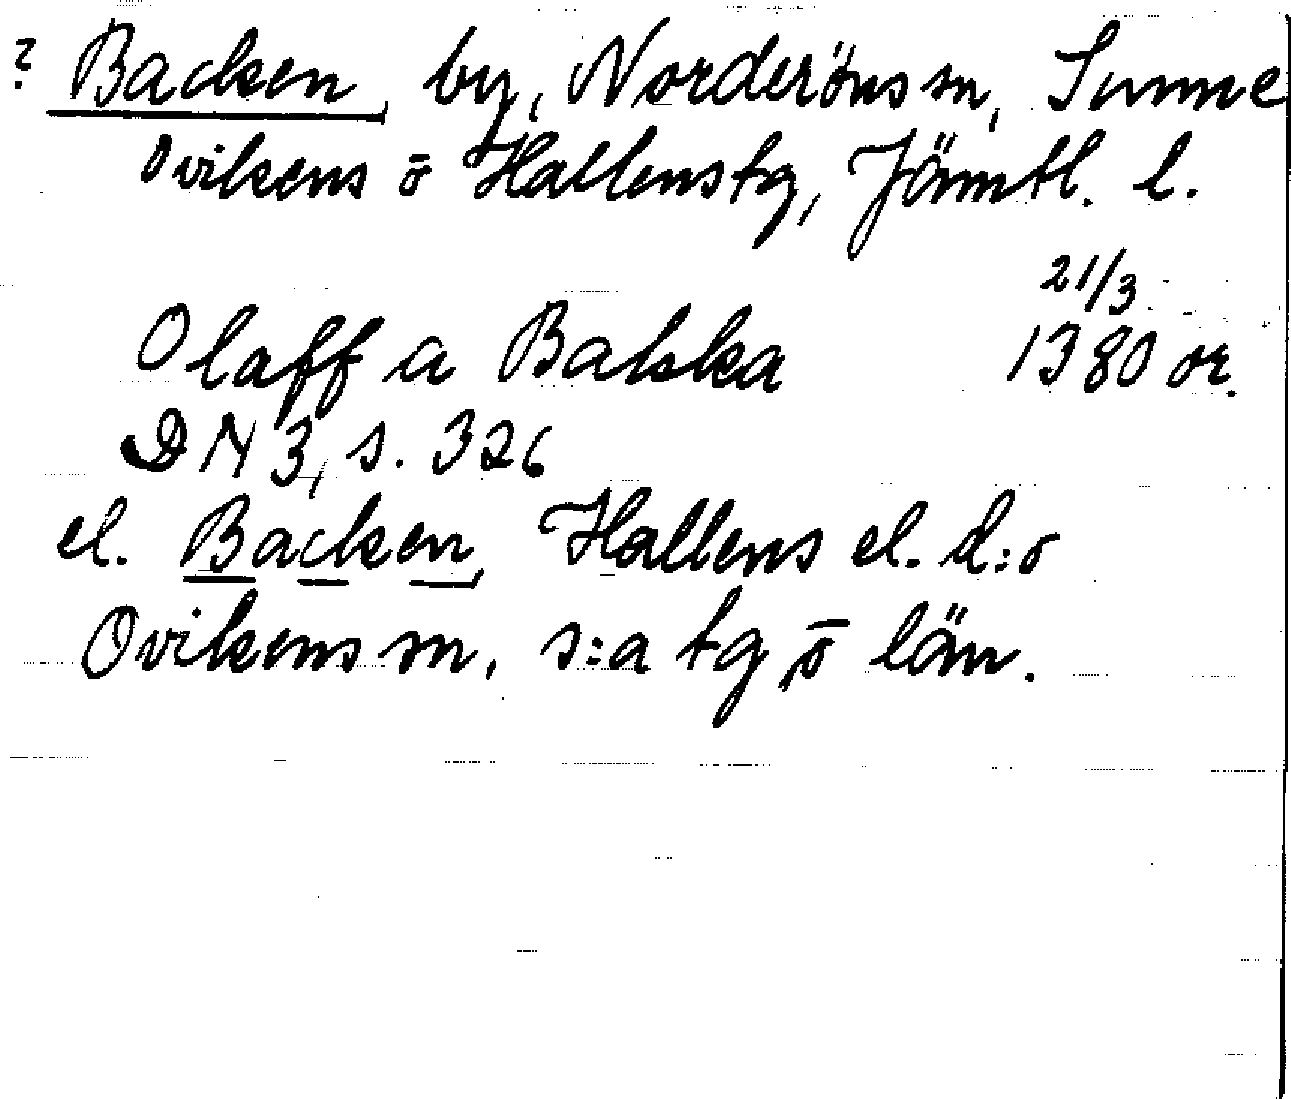 ? Backen, by, Norderöns sn, Sunne
Ovikens ō Hallens tg, Jämtl. l.
21/3
Olaff a Bakka 1380 or.
DN 3, s. 326
el. Backen, Hallens el. d:o
Ovikens sn, s:a tg ō län.